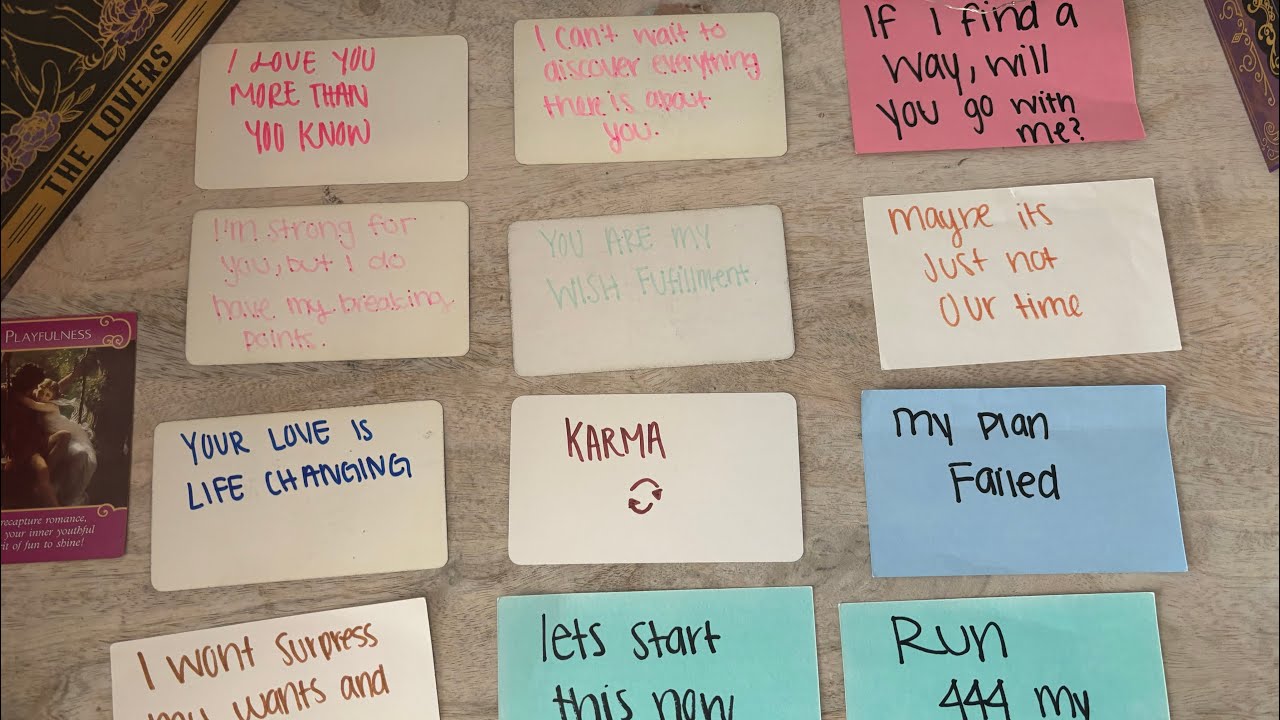 THE LOVERS
I LOVE YOU
MORE THAN
YOU KNOW
I can't wait to
discover everything
there is about
you.
If I find a
way, will
you go with
me?
I'm strong for
you, but I do
have my breaking
points.
YOU ARE MY
WISH Fulfillment.
maybe its
just not
our time
PLAYFULNESS
recapture romance,
your inner youthful
rit of fun to shine!
YOUR LOVE IS
LIFE CHANGING
KARMA
my plan
Failed
I wont surpress
my wants and
lets start
this now
Run
444 my